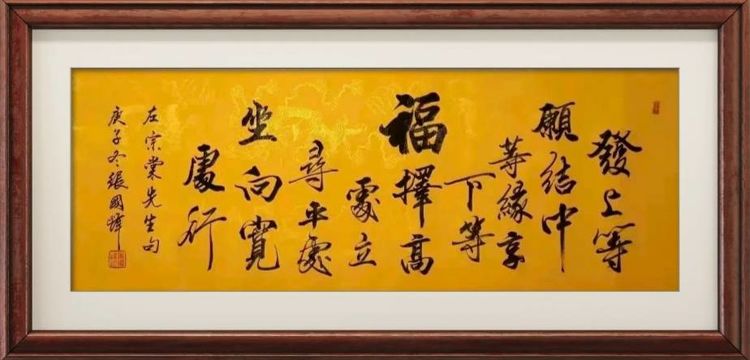 發上等
願結中
等緣享
下等
福擇高
處立
尋平處
坐向寬
處行
左宗棠先生句
庚子冬張國